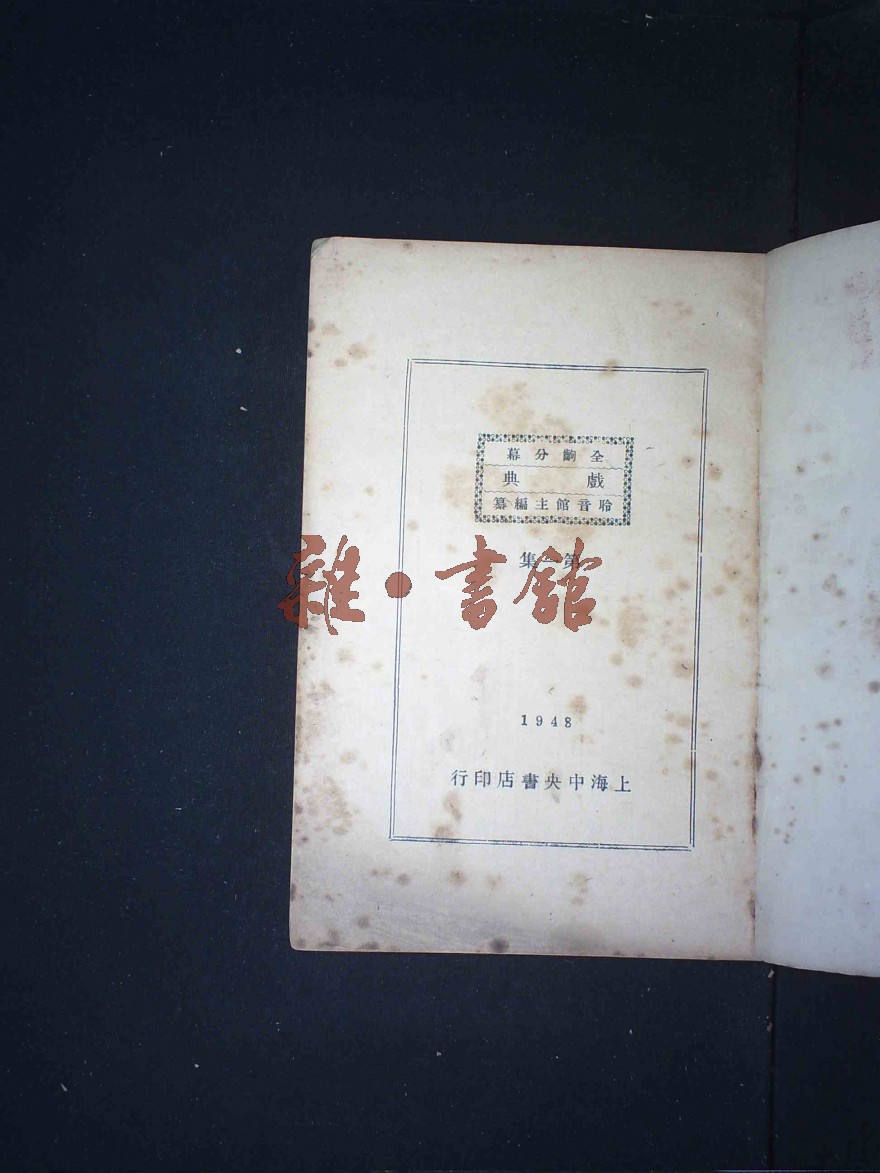 全齣分幕
戲典
聆音館主編纂
第一集
雜•書館
1948
上海中央書店印行